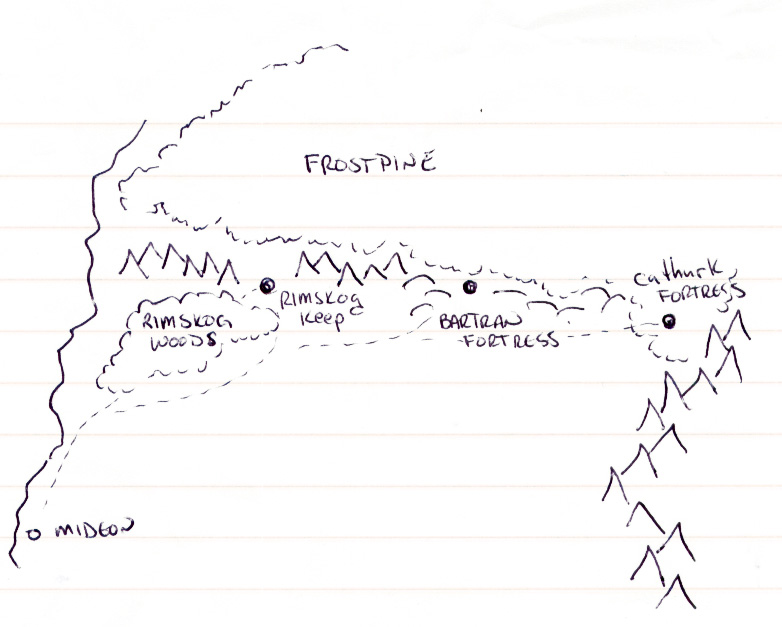 FROSTPINE
Cathurk
FORTRESS
RIMSKOG
KEEP
RIMSKOG
WOODS
BARTRAN
FORTRESS
MIDEON